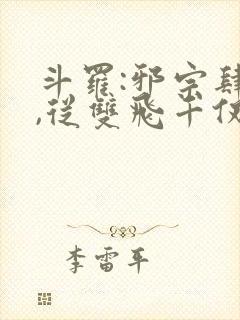 斗羅:邪宗肆
,從雙飛千仞
李雷平